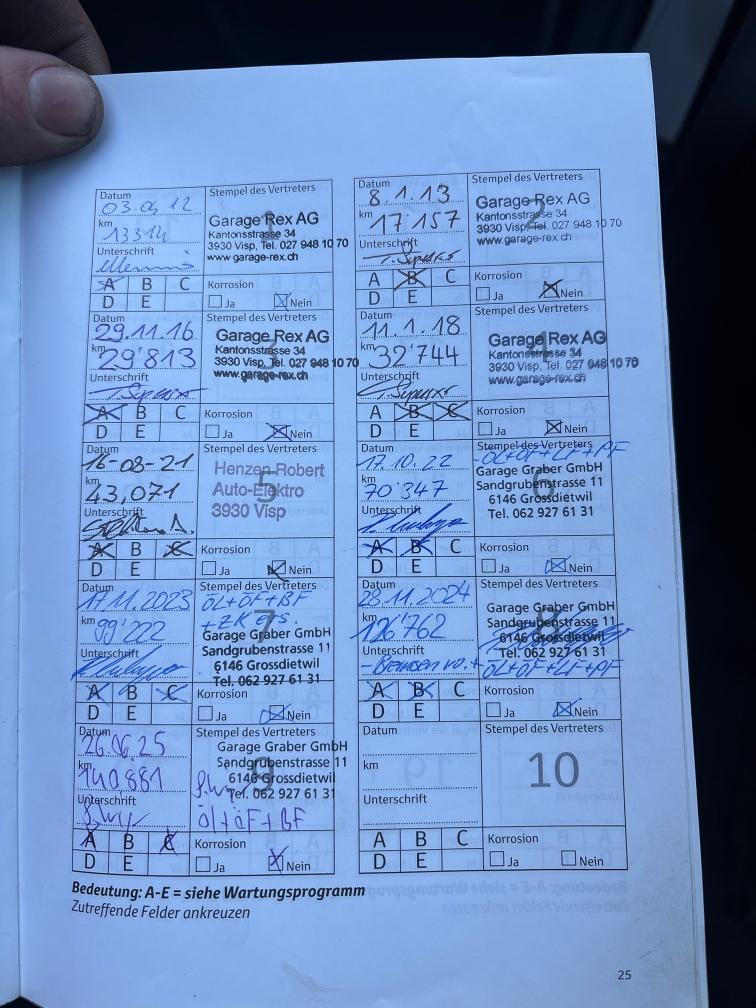 Datum 03.04.12
km 13314
Unterschrift
Stempel des Vertreters
1
Garage Rex AG
Kantonsstrasse 34
3930 Visp, Tel. 027 948 10 70
www.garage-rex.ch
A B C
D E
Korrosion
Ja Nein
Datum 8.1.13
km 17'157
Unterschrift
Stempel des Vertreters
2
Garage Rex AG
Kantonsstrasse 34
3930 Visp, Tel. 027 948 10 70
www.garage-rex.ch
A B C
D E
Korrosion
Ja Nein
Datum 29.11.16
km 29'813
Unterschrift
Stempel des Vertreters
3
Garage Rex AG
Kantonsstrasse 34
3930 Visp, Tel. 027 948 10 70
www.garage-rex.ch
A B C
D E
Korrosion
Ja Nein
Datum 11.1.18
km 32'744
Unterschrift
Stempel des Vertreters
4
Garage Rex AG
Kantonsstrasse 34
3930 Visp, Tel. 027 948 10 70
www.garage-rex.ch
A B C
D E
Korrosion
Ja Nein
Datum 16-08-21
km 43,071
Unterschrift
Stempel des Vertreters
5
Henzen Robert
Auto-Elektro
3930 Visp
A B C
D E
Korrosion
Ja Nein
Datum 17.10.22
km 70'347
Unterschrift
Stempel des Vertreters
ÖL+ÖF+LF+PF
6
Garage Graber GmbH
Sandgrubenstrasse 11
6146 Grossdietwil
Tel. 062 927 61 31
A B C
D E
Korrosion
Ja Nein
Datum 17.11.2023
km 99'222
Unterschrift
Stempel des Vertreters
ÖL+ÖF+BF
+ZK ers.
7
Garage Graber GmbH
Sandgrubenstrasse 11
6146 Grossdietwil
Tel. 062 927 61 31
A B C
D E
Korrosion
Ja Nein
Datum 28.11.2024
km 126'762
Unterschrift
Stempel des Vertreters
8
Garage Graber GmbH
Sandgrubenstrasse 11
6146 Grossdietwil
Tel. 062 927 61 31
- Bremsen vo. + ÖL+ÖF+LF+PF
A B C
D E
Korrosion
Ja Nein
Datum 26.06.25
km 140'881
Unterschrift
Stempel des Vertreters
9
Garage Graber GmbH
Sandgrubenstrasse 11
6146 Grossdietwil
Tel. 062 927 61 31
Öl+ÖF+BF
A B C
D E
Korrosion
Ja Nein
Datum
km
Unterschrift
Stempel des Vertreters
10
A B C
D E
Korrosion
Ja Nein
Bedeutung: A-E = siehe Wartungsprogramm
Zutreffende Felder ankreuzen
25